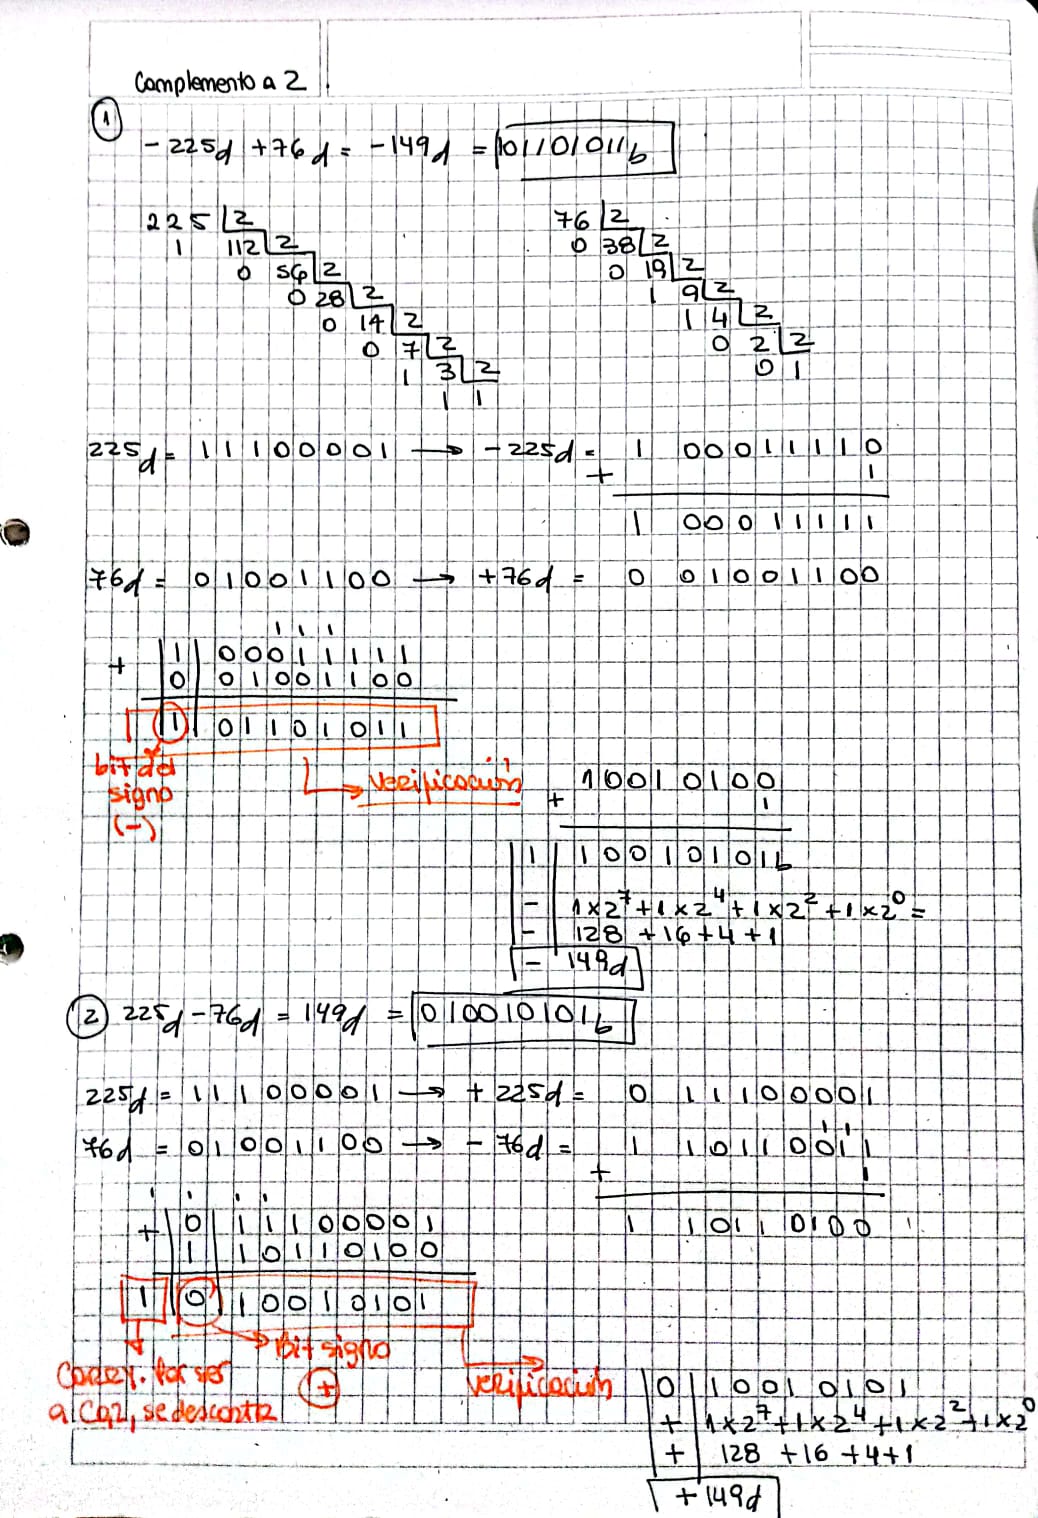 Complemento a 2
1
- 225d + 76d = - 149d = 101101011b
225 2
1 112 2
0 56 2
0 28 2
0 14 2
0 7 2
1 3 2
1 1
76 2
0 38 2
0 19 2
1 9 2
1 4 2
0 2 2
0 1
225d = 11100001 → - 225d = 1 00011110
+ 1
1 00011111
76d = 01001100 → + 76d = 0 01001100
1 1 1
+ 1 00011111
0 01001100
1 01101011
bit del signo (-)
→ verificación
10010100
+ 1
1 10010101b
- 1x2^7 + 1x2^4 + 1x2^2 + 1x2^0 =
- 128 + 16 + 4 + 1
- 149d
2 225d - 76d = 149d = 010010101b
225d = 11100001 → + 225d = 0 11100001
1 1
76d = 01001100 → - 76d = 1 10110011
+ 1
1 10110100
1 1 1 1
+ 0 11100001
1 10110100
1 0 10010101
→ Bit signo
+
Carry. Por ser
a Ca2, se descarta
verificación
0 10010101
+ 1x2^7 + 1x2^4 + 1x2^2 + 1x2^0
+ 128 + 16 + 4 + 1
+ 149d